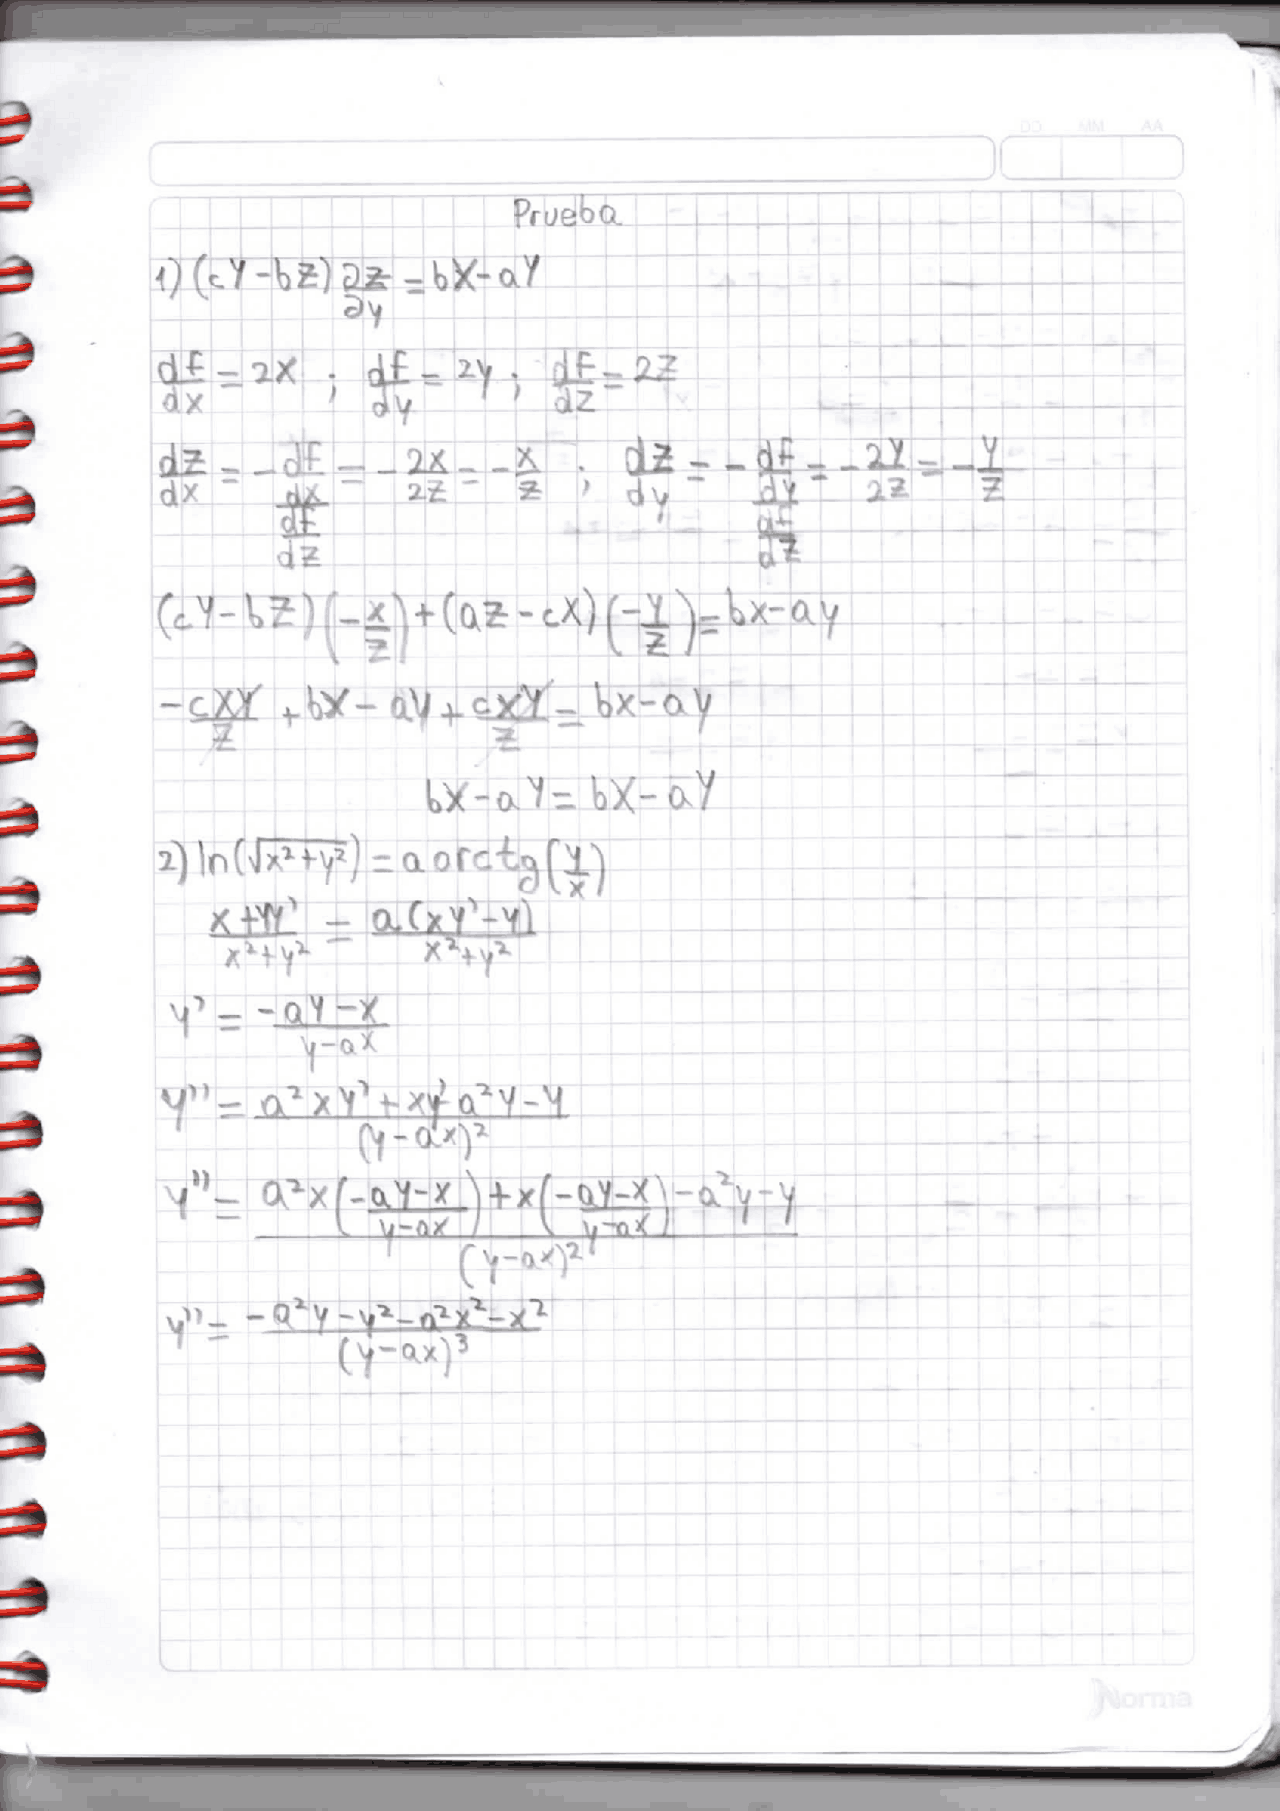 DD MM AA
Prueba
1) (cY-bZ) ∂z/∂y = bX-aY
df/dx = 2X ; df/dy = 2y ; df/dz = 2Z
dz/dx = - (df/dx)/(df/dz) = - 2X/2Z = - X/Z ; dz/dy = - (df/dy)/(df/dz) = - 2Y/2Z = - Y/Z
(cY-bZ)(-x/z)+(aZ-cX)(-Y/Z)=bx-ay
-cXY/Z + bX - aY + cXY/Z = bx-ay
bX-aY = bX-aY
2) ln(√x²+y²) = a arctg(y/x)
x+yy'/x²+y² = a(xy'-y)/x²+y²
y' = -aY-x/y-ax
y'' = a²xy'+xy'-a²y-y/(y-ax)²
y'' = a²x(-aY-x/y-ax)+x(-aY-x/y-ax)-a²y-y/(y-ax)²
y'' = -a²y-y²-a²x²-x²/(y-ax)³
Norma